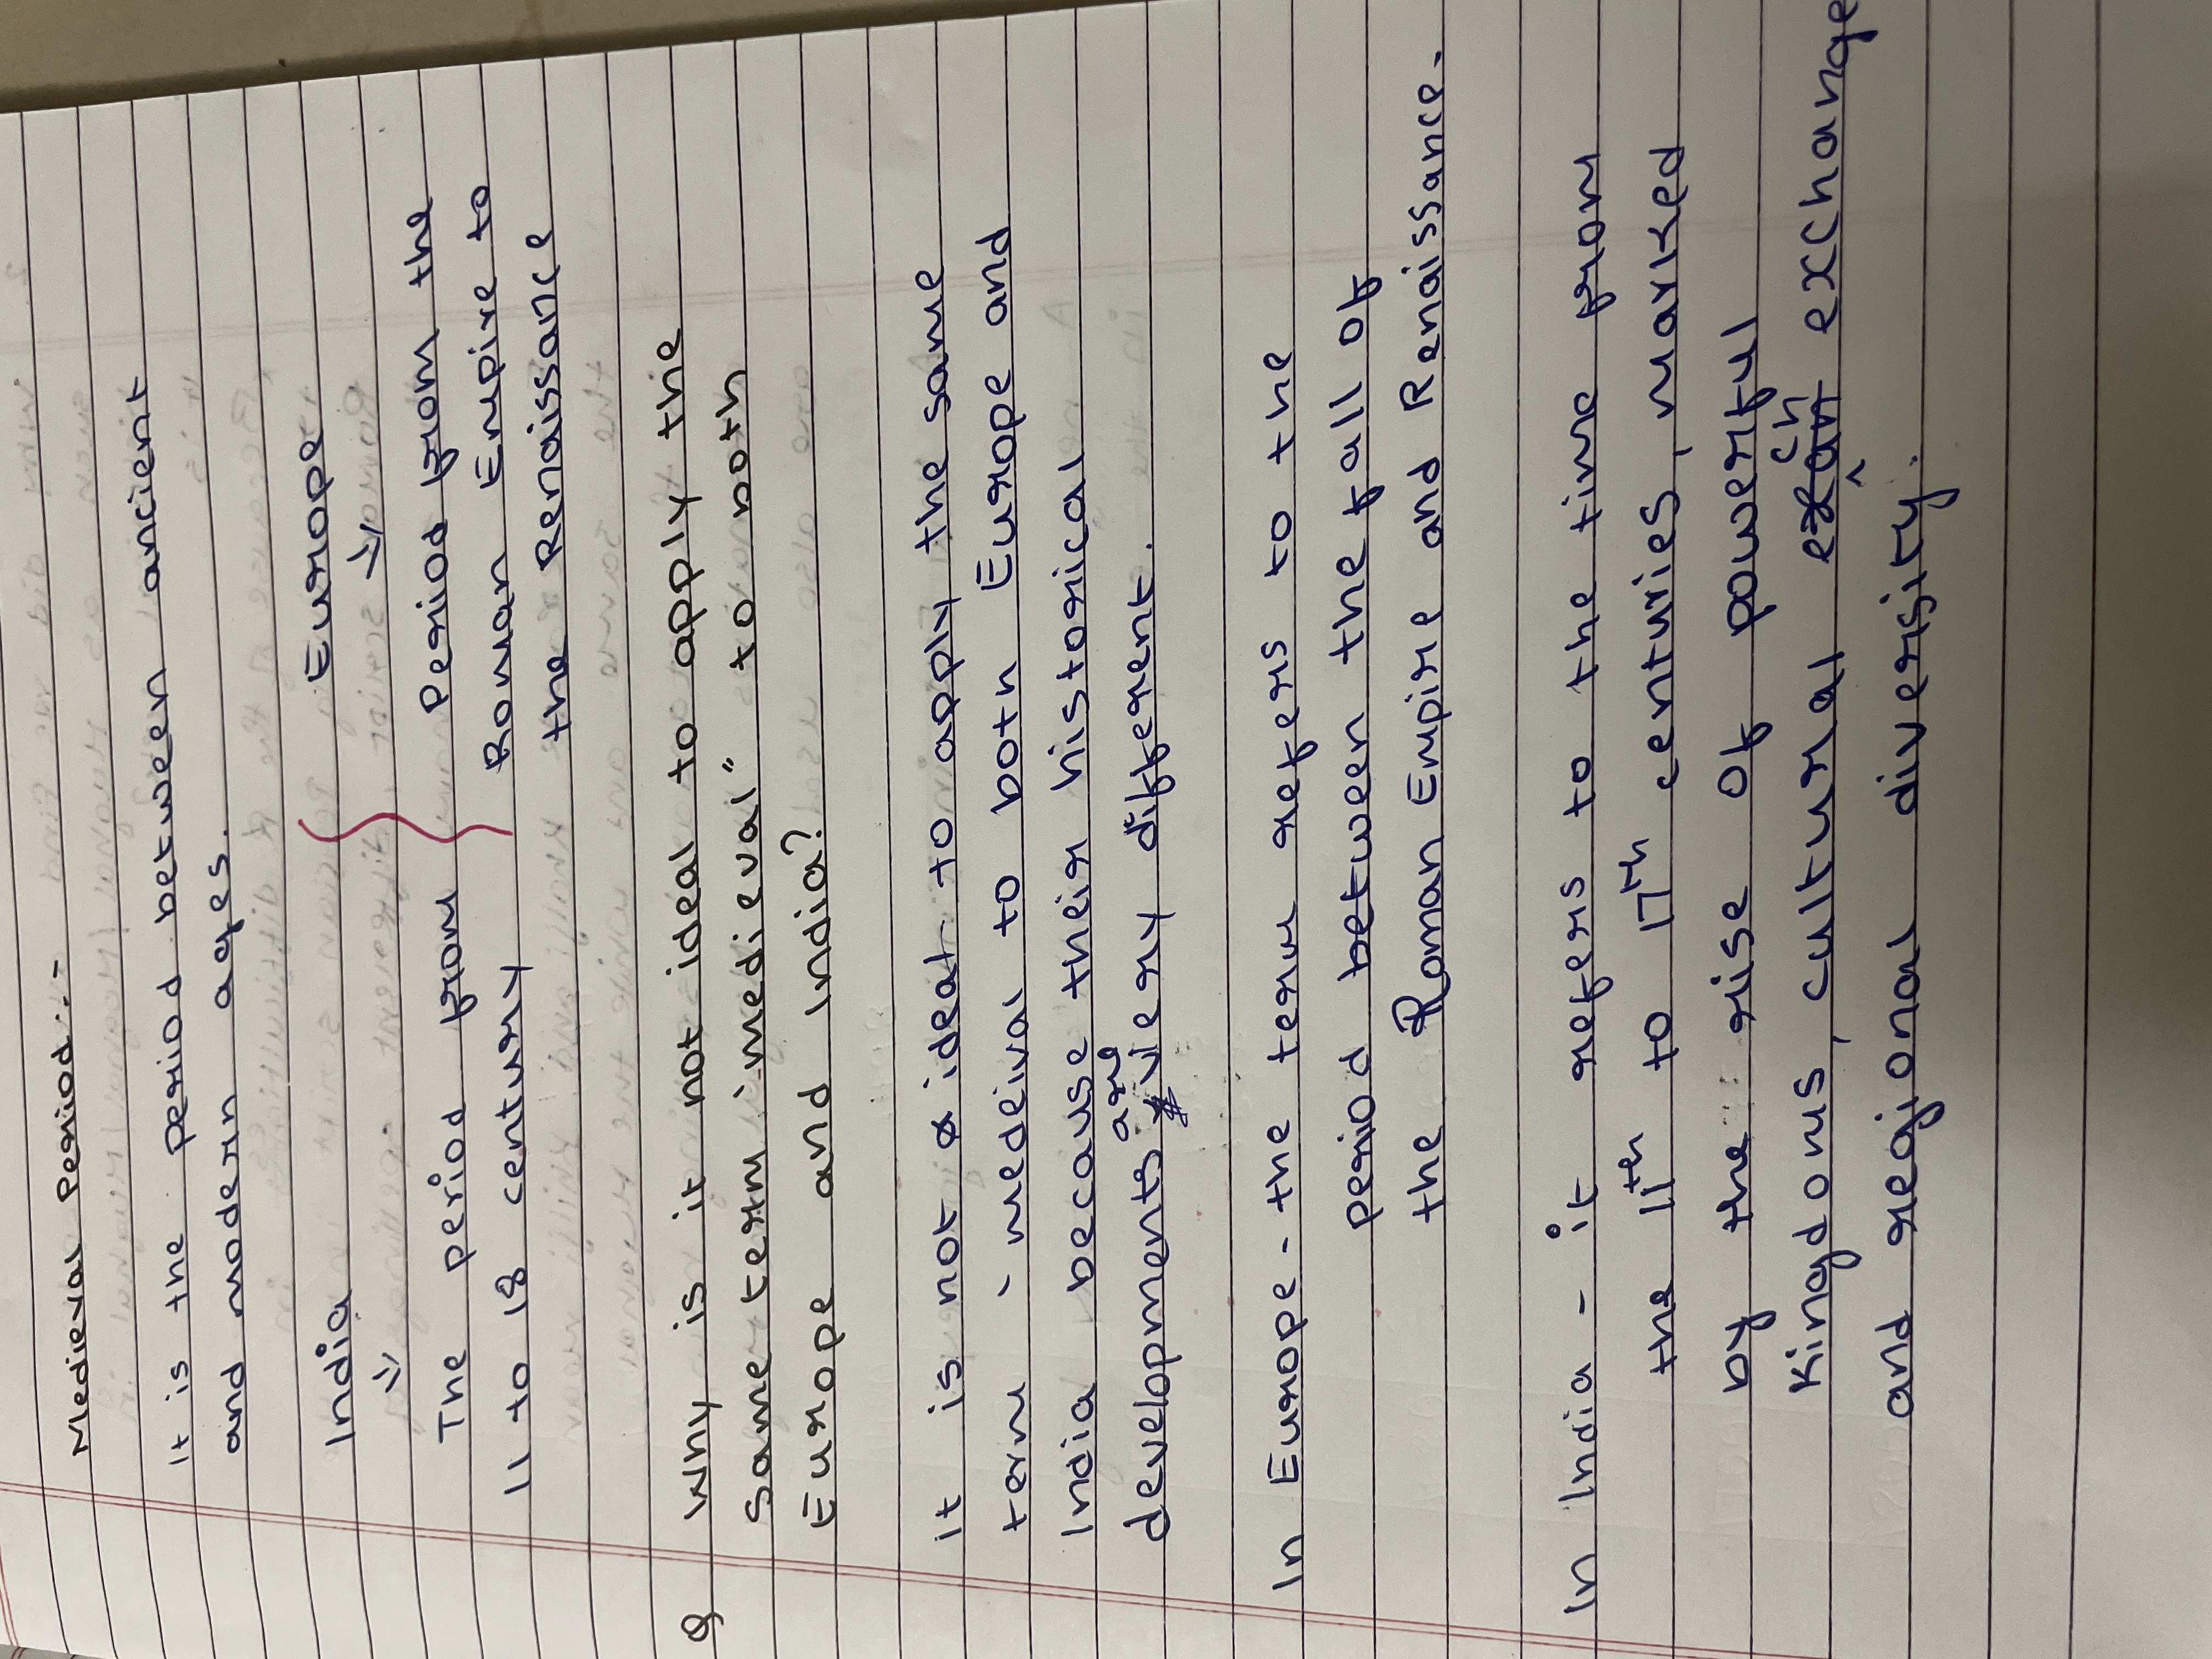 Medieval period:-
It is the period between ancient
and modern ages.
India Europe
The period from Period from the
11 to 18 century Roman Empire to
the Renaissance
Q Why is it not ideal to apply the
same term "medieval" to noth
Europe and India?
it is not ideal to apply the same
term - medeival to both Europe and
India because their historical
developments are very different.
In Europe - the term refers to the
period between the fall of
the Roman Empire and Renaissance.
In India - it refers to the time from
the 11th to 17th centuries, marked
by the rise of powerful
Kingdoms, cultural exchange
and regional diversity.